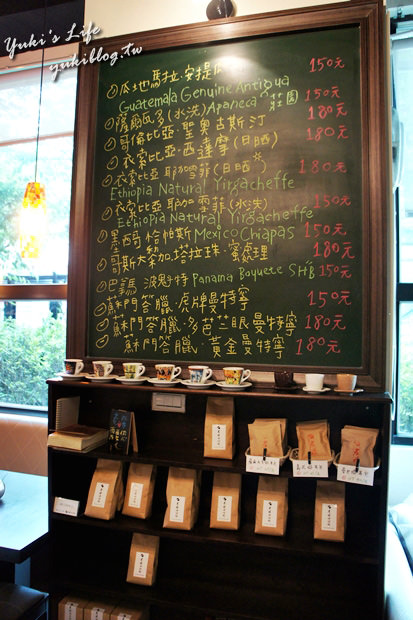 Yuki's Life
yukiblog.tw
瓜地馬拉·安提瓜 150元
Guatemala Genuine Antigua
薩爾瓦多(水洗) Apaneca 莊園 150元
哥倫比亞·聖奧古斯汀 180元
衣索比亞·西達摩(日晒) 180元
衣索比亞耶加雪菲(日晒) 180元
Ethiopia Natural Yirgacheffe
衣索比亞耶加雪菲(水洗) 150元
Ethiopia Natural Yirgacheffe
墨西哥 恰帕斯 Mexico Chiapas 150元
哥斯大黎加.塔拉珠·蜜處理 180元
巴拿馬 波魁特 Panama Boquete SHB 150元
蘇門答臘·虎牌曼特寧 150元
蘇門答臘·多芭兰眼曼特寧 180元
蘇門答臘·黃金曼特寧 180元